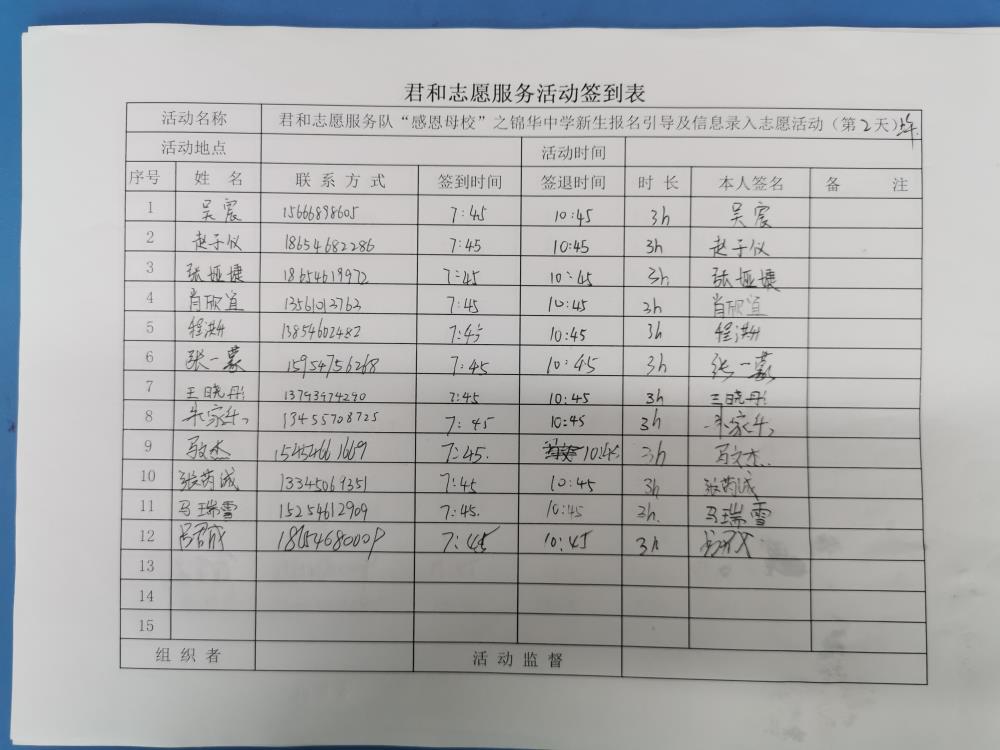 君和志愿服务活动签到表
活动名称 君和志愿服务队“感恩母校”之锦华中学新生报名引导及信息录入志愿活动（第2天）上午
活动地点 活动时间
序号 姓名 联系方式 签到时间 签退时间 时长 本人签名 备注
1 吴宸 15666898605 7:45 10:45 3h 吴宸
2 赵子仪 18654682286 7:45 10:45 3h 赵子仪
3 张娅婕 18654619972 7:45 10:45 3h 张娅婕
4 肖欣宜 13561013762 7:45 10:45 3h 肖欣宜
5 程洪 13854602482 7:45 10:45 3h 程洪
6 张一蒙 15954756268 7:45 10:45 3h 张一蒙
7 王晓彤 13793974290 7:45 10:45 3h 王晓彤
8 朱家 13455708725 7:45 10:45 3h 朱家
9 马文杰 15454661669 7:45 10:45 3h 马文杰
10 张芮诚 13345069351 7:45 10:45 3h 张芮诚
11 马瑞雪 15254612909 7:45 10:45 3h 马瑞雪
12 吕君成 7:45 10:45 3h
13
14
15
组织者 活动监督